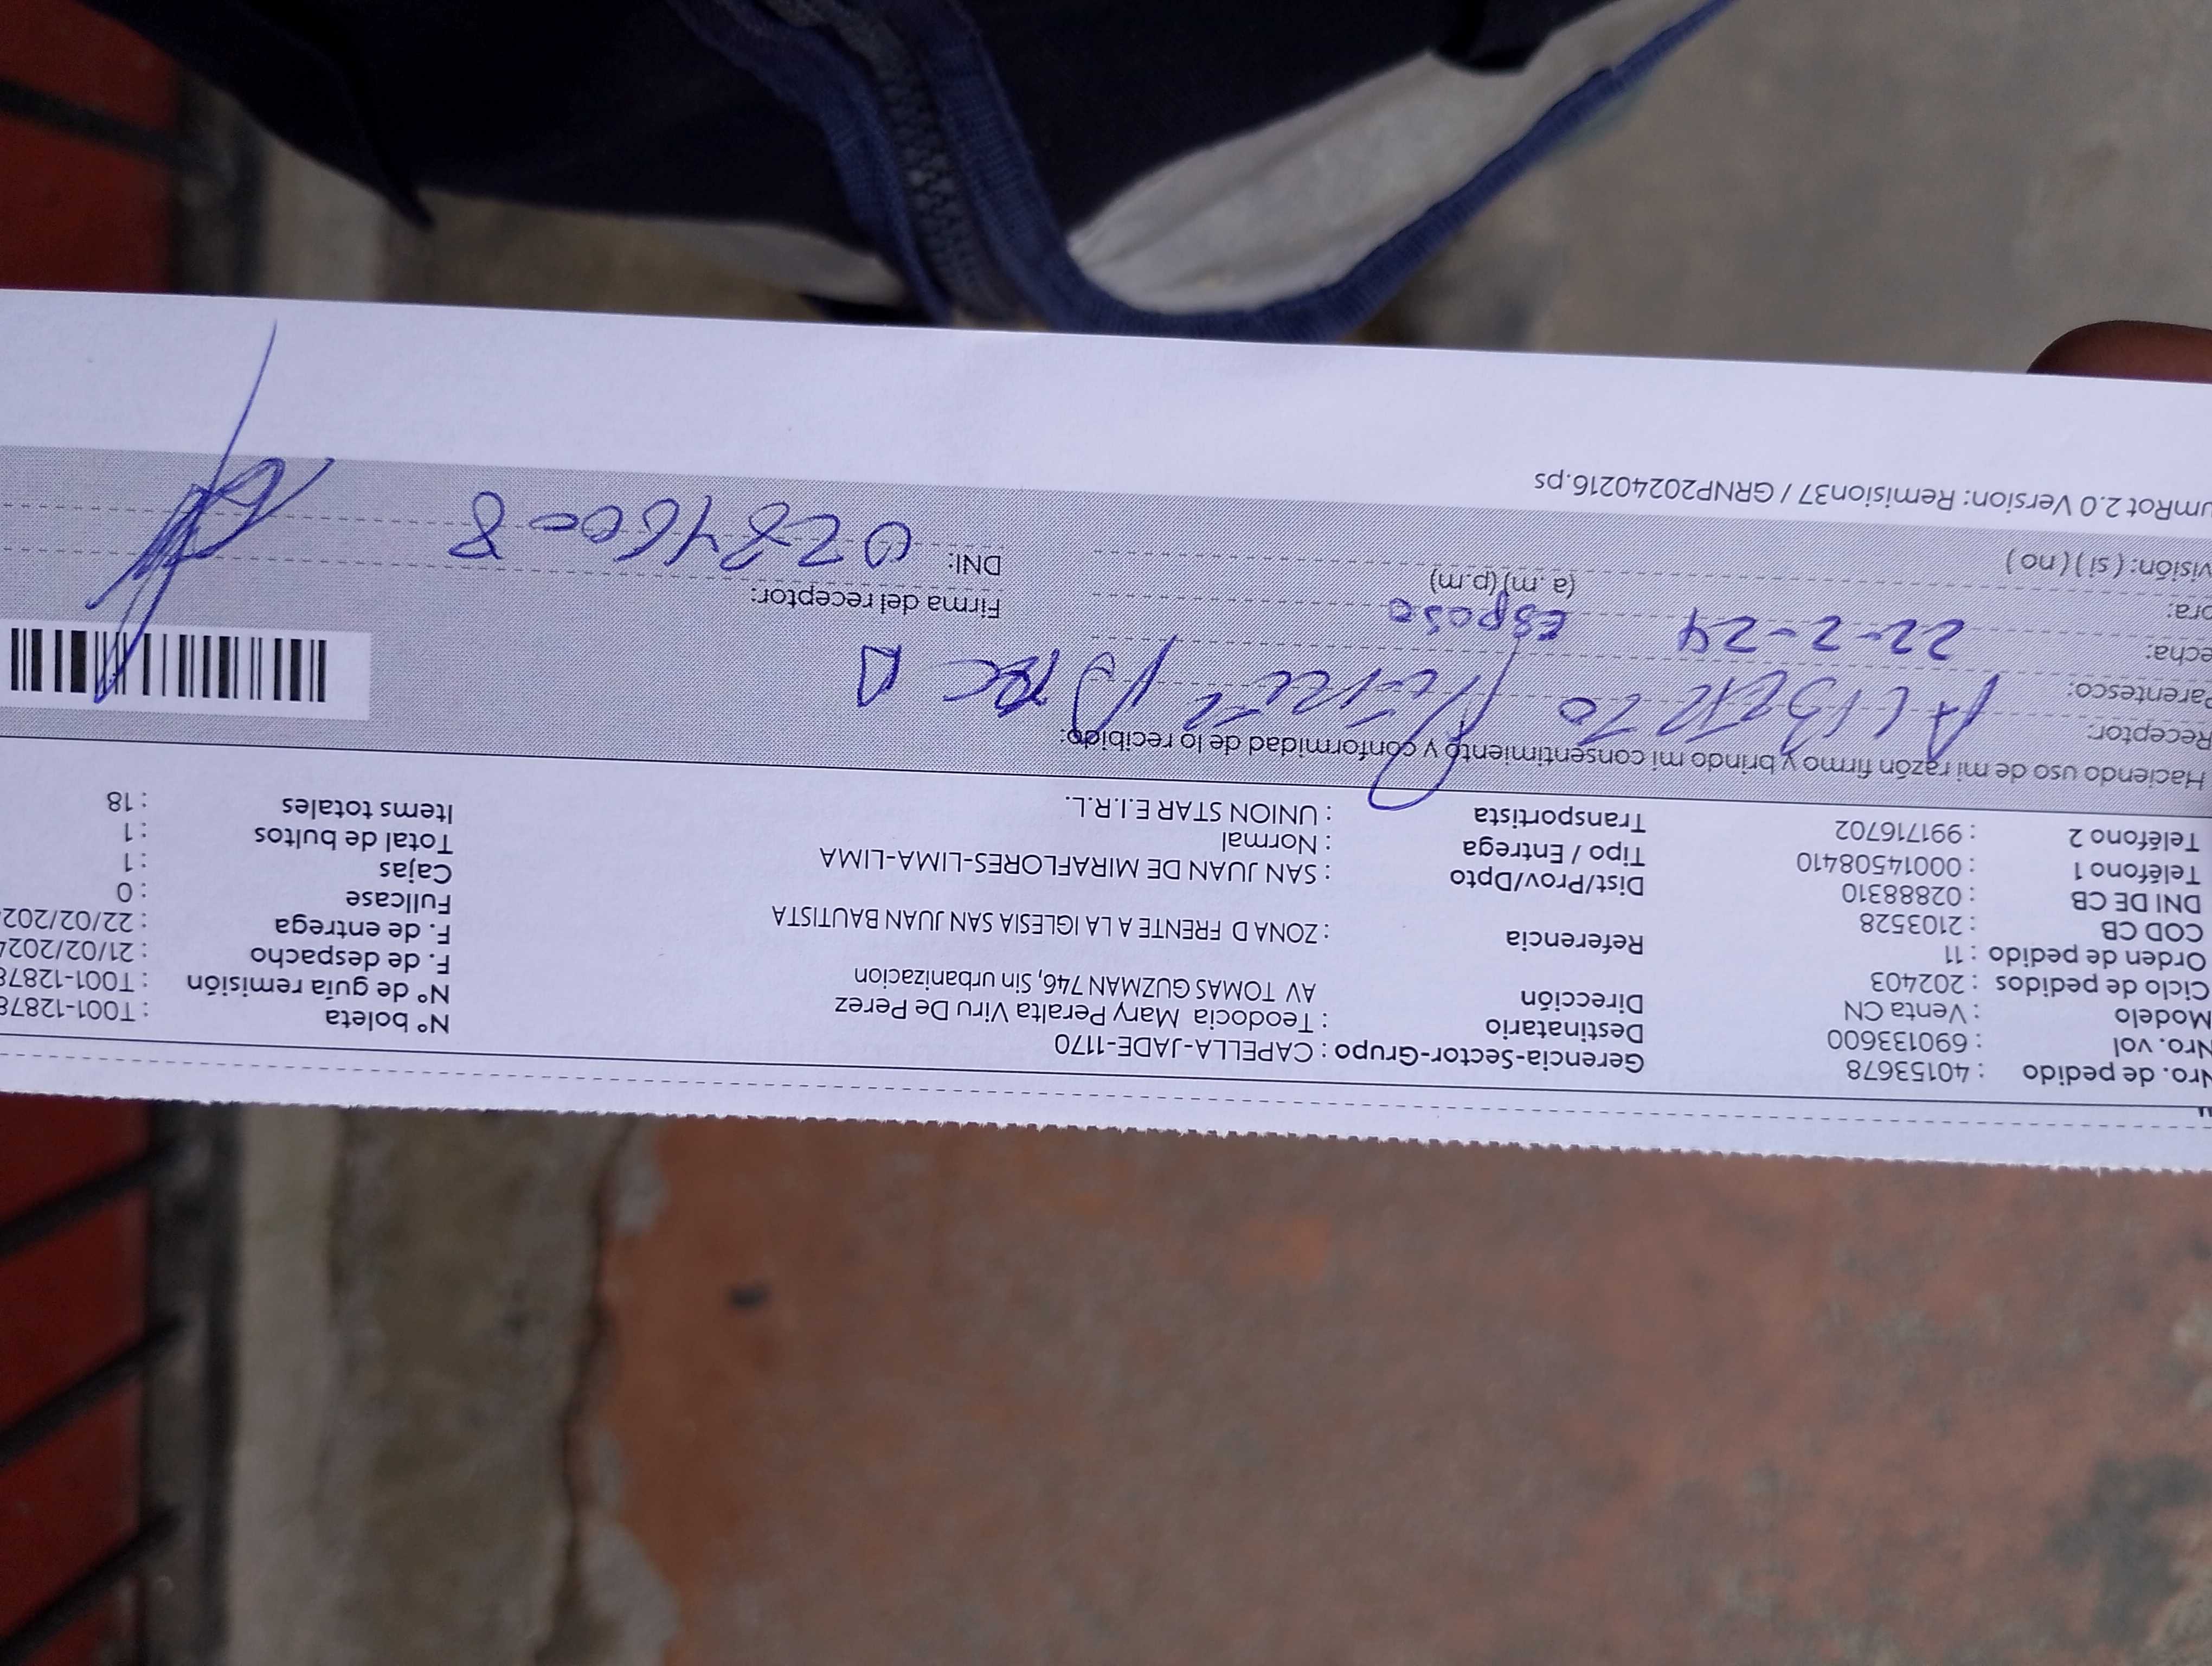 Nro. de pedido : 40153678 Gerencia-Sector-Grupo : CAPELLA-JADE-1170
Nro. vol : 690133600 Destinatario : Teodocia Mary Peralta Viru De Perez Nº boleta : T001-12878
Modelo : Venta CN Dirección AV TOMAS GUZMAN 746, Sin urbanizacion Nº de guía remisión : T001-12878
Ciclo de pedidos : 202403 F. de despacho : 21/02/2024
Orden de pedido : 11 Referencia : ZONA D FRENTE A LA IGLESIA SAN JUAN BAUTISTA F. de entrega : 22/02/202
COD CB : 2103528 Fullcase : 0
DNI DE CB : 02888310 Dist/Prov/Dpto : SAN JUAN DE MIRAFLORES-LIMA-LIMA Cajas : 1
Teléfono 1 : 00014508410 Tipo / Entrega : Normal Total de bultos : 1
Teléfono 2 : 991716702 Transportista : UNION STAR E.I.R.L. Items totales : 18
Haciendo uso de mi razón firmo y brindo mi consentimiento y conformidad de lo recibido:
Receptor: ALBERTO
Parentesco: Esposo
echa: 22-2-24
ora: (a. m) (p.m)
visión: ( si ) ( no )
Firma del receptor:
DNI:
umRot 2.0 Version: Remision37 / GRNP20240216.ps